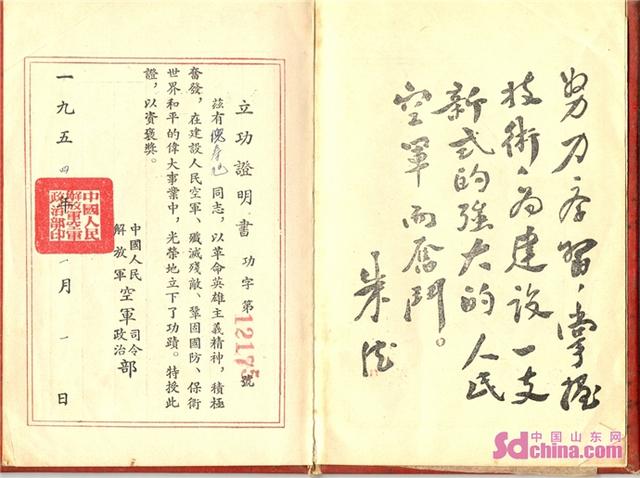 努力学習，掌握
技術，为建设一支
新式的強大的人民
空軍而奮鬥。
朱德
立功證明書 功字第12175號
茲有 同志，以革命英雄主義精神，積極
奮發，在建設人民空軍、殲滅殘敵、鞏固國防、保衛
世界和平的偉大事業中，光榮地立下了功蹟。特授此
證，以資褒獎。
中國人民
解放軍
空軍
司令
政治
部
一九五四年 月一日
中國人民
解放軍空軍
政治部印
中国山东网
Sdchina.com